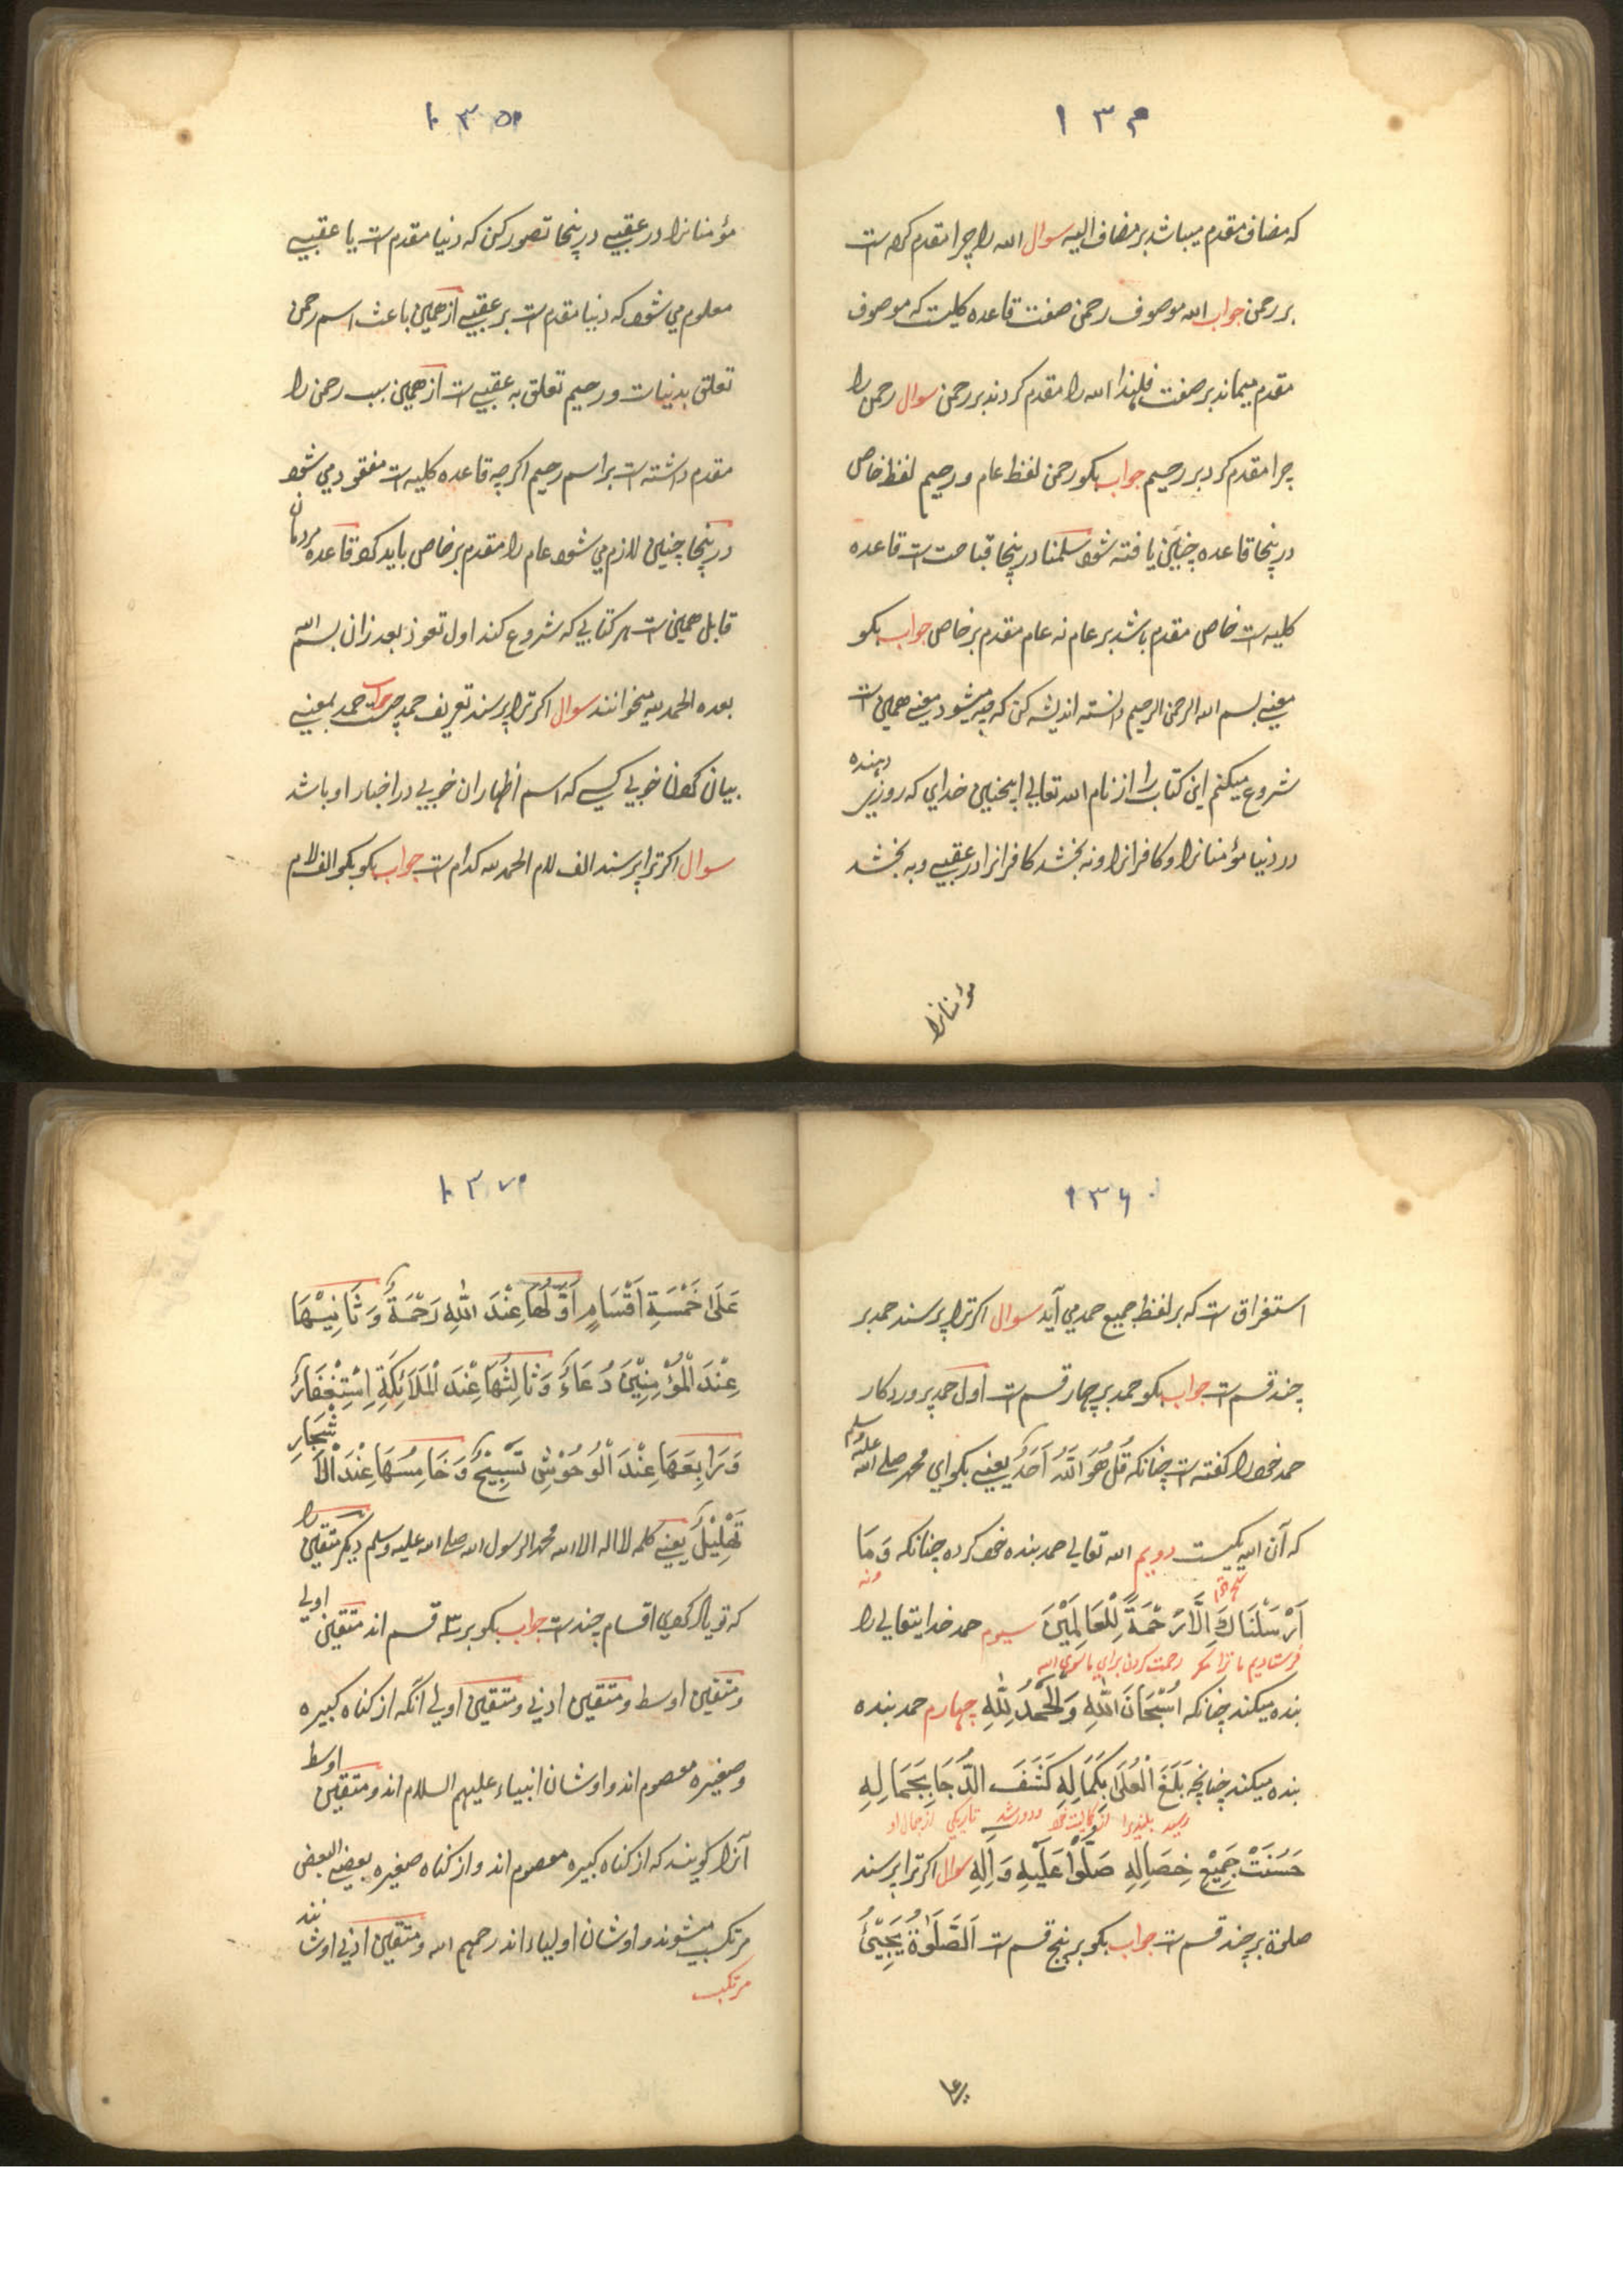 ۱۳۴
که مضاف مقدم میباشد بر مضاف الیه سوال الله را چرا مقدم کرده است
بر رحمن جواب الله موصوف رحمن صفت قاعده کلیت که موصوف
مقدم میماند بر صفت فلهذا الله را مقدم کردند بر رحمن سوال رحمن را
چرا مقدم کرد بر رحیم جواب بکو رحمن لفظ عام و رحیم لفظ خاص
درینجا قاعده چنین یافته شود سلمنا درینجا قباحت است قاعده
کلیه است خاص مقدم باشد بر عام نه عام مقدم بر خاص جواب بکو
معنی بسم الله الرحمن الرحیم دانسته اندیشه کن که چه میشود معنی همین است
شروع میکنم این کتاب را از نام الله تعالی اینچنین خدای که روزی دهنده
در دنیا مؤمنانرا و کافرانرا و نه بخشد کافرانرا در عقبی و به بخشد
مؤمنانرا
۱۳۵
مؤمنانرا در عقبی درینجا تصور کن که دنیا مقدم است یا عقبی
معلوم می شود که دنیا مقدم است بر عقبی از همین باعث اسم رحمن
تعلق بدنیات و رحیم تعلق به عقبی است از همین سبب رحمن را
مقدم داشته است بر اسم رحیم اکرچه قاعده کلیه است مفقود می شود
درینجا چنین لازم می شود عام را مقدم بر خاص باید کرد قاعده مردمان
قابل همین است هر کتابی که شروع کند اول تعوذ بعد زان بسم الله
بعده الحمد لله میخوانند سوال اکر ترا پرسند تعریف حمد چیست جواب حمد بمعنی
بیان کردن خوبی کسی که اسم اظهار ان خوبی در اخبار او باشد
سوال اکر ترا پرسند الف لام الحمد لله کدام است جواب بکو بکو الف لام
۱۳۶
استغراق است که بر لفظ جمیع حمد می آید سوال اکر ترا پرسند حمد بر
چند قسم است جواب بکو حمد بر چهار قسم است اول حمد پروردکار
حمد خود را کفته است چنانکه قُلْ هُوَ اللّٰهُ اَحَدٌ یعنی بکو ای محمد صلی الله علیه وسلم
که آن الله یکیست دویم الله تعالی حمد بنده خود کرده چنانکه وَمَا
ونه
اَرْسَلْنَاكَ اِلَّا رَحْمَةً لِلْعَالَمِیْنَ سیوم حمد خدایتعالی را
فرستادیم ما ترا مکر رحمت کردن برای ماسوی الله
بنده میکند چنانکه سُبْحَانَ اللّٰهِ وَالْحَمْدُ لِلّٰهِ چهارم حمد بنده
بنده میکند چنانچه بَلَغَ الْعُلٰی بِکَمَالِهِ کَشَفَ الدُّجَا بِجَمَالِهِ
رسید بلندیرا ودور شد تاریکی از جمال او
حَسُنَتْ جَمِیْعُ خِصَالِهِ صَلُّوْا عَلَیْهِ وَاٰلِهِ سوال اکر ترا پرسند
صلوة بر چند قسم است جواب بکو بر پنج قسم است اَلصَّلٰوةُ یَجِیْئُ
۱۳۷
عَلٰی خَمْسَةِ اَقْسَامٍ اَوَّلُهَا عِنْدَ اللّٰهِ رَحْمَةٌ وَثَانِیْهَا
عِنْدَ الْمُؤْمِنِیْنَ دُعَاءٌ وَثَالِثُهَا عِنْدَ الْمَلَائِکَةِ اِسْتِغْفَارٌ
وَرَابِعَهَا عِنْدَ الْوُحُوْشِ تَسْبِیْحٌ وَخَامِسُهَا عِنْدَ الْاَشْجَارِ
تَهْلِیْلٌ یعنی کلمه لا اله الا الله محمد الرسول الله صلی الله علیه وسلم دیکر متقین را
که تو یاد کردی اقسام چند است جواب بکو بر سه قسم اند متقین اولی
و متقین اوسط و متقین ادنی و متقین اولی آنکه از کناه کبیره
و صغیره معصوم اند و اوشان انبیاء علیهم السلام اند و متقین اوسط
آنرا کویند که از کناه کبیره معصوم اند و از کناه صغیره بعضی البعض
مرتکب میشوند و اوشان اولیاء اند رحمهم الله و متقین ادنی اوشانند
مرتکب